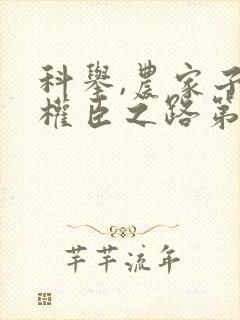 科舉,農家子
權臣之路第
芊芊流年